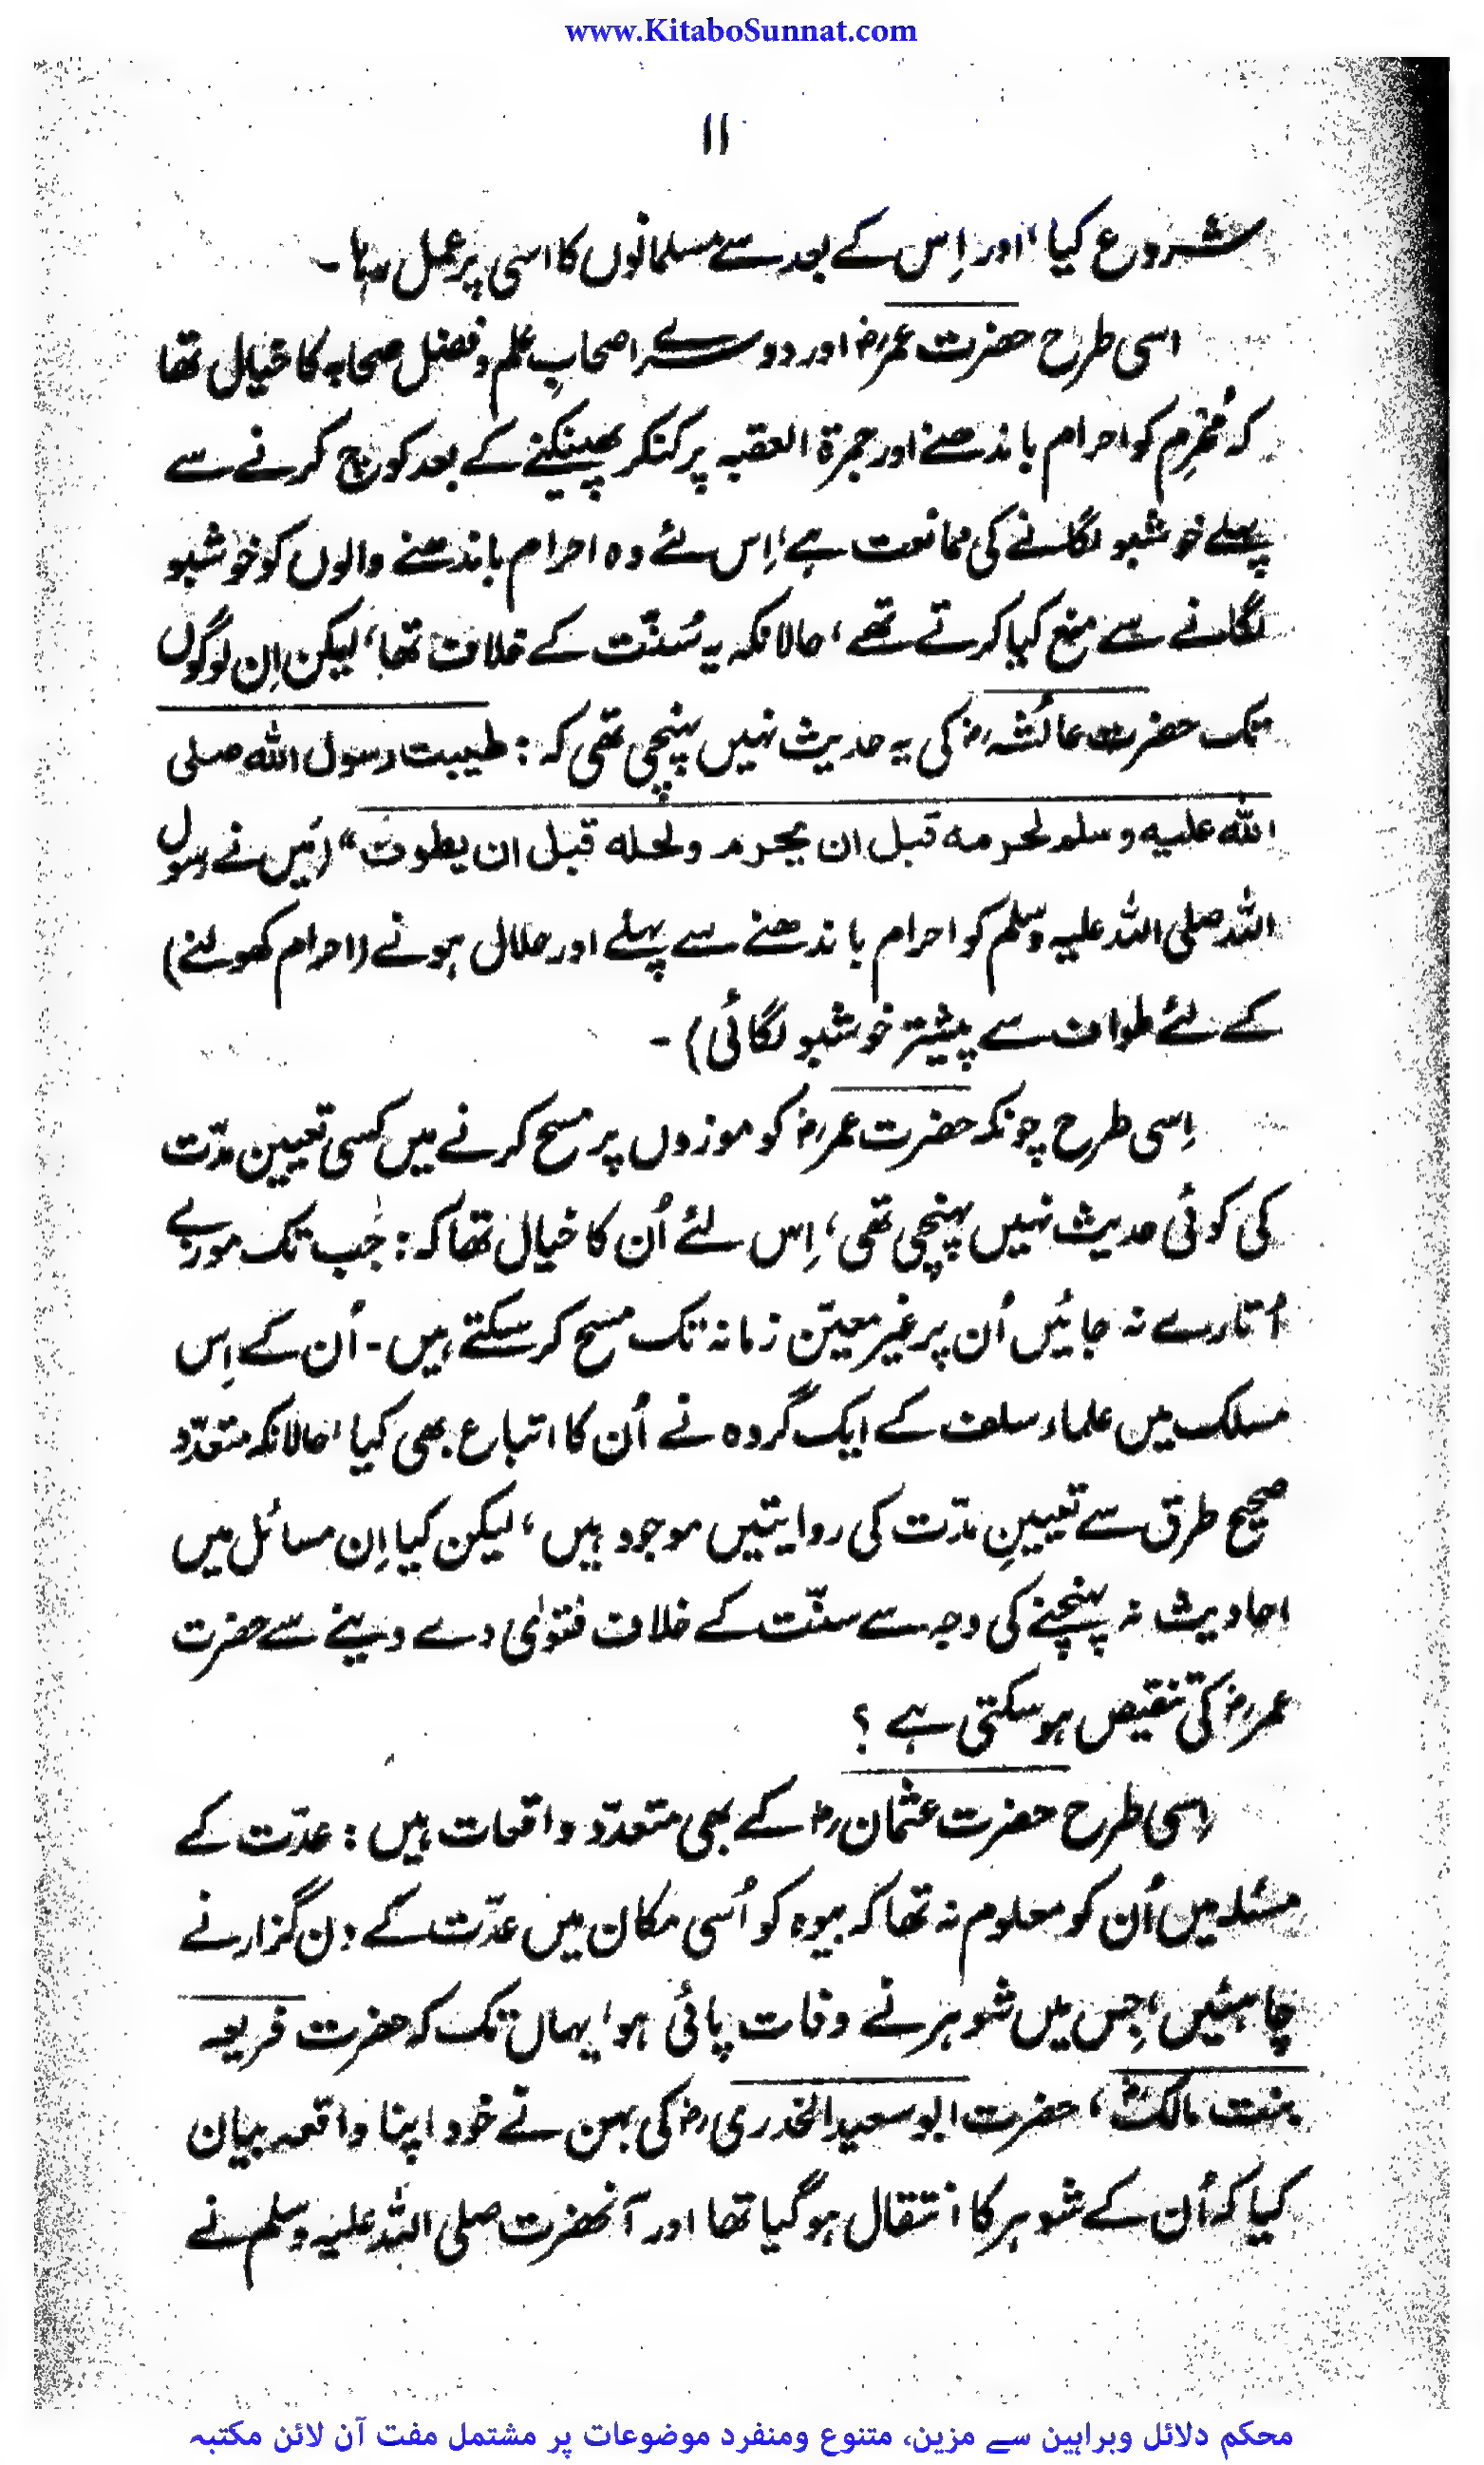 www.KitaboSunnat.com
۱۱
شروع کیا، اور اِس کے بعد سے مسلمانوں کا اسی پر عمل رہا۔
اسی طرح حضرت عمرؓ اور دوسرے اصحابِ علم و فضل صحابہ کا خیال تھا
کہ مُحْرِم کو احرام باندھنے اور جمرۃ العقبہ پر کنکر پھینکنے کے بعد کوچ کرنے سے
پہلے خوشبو لگانے کی ممانعت ہے، اِس لئے وہ احرام باندھنے والوں کو خوشبو
لگانے سے منع کیا کرتے تھے، حالانکہ یہ سُنّت کے خلاف تھا، لیکن اِن لوگوں
تک حضرت عائشہؓ کی یہ حدیث نہیں پہنچی تھی کہ: طیبت رسول اللہ صلی
اللہ علیہ وسلم لحرمہ قبل ان یحرم ولحلہ قبل ان یطوف“ (میں نے رسول
اللہ صلی اللہ علیہ وسلم کو احرام باندھنے سے پہلے اور حلال ہونے (احرام کھولنے)
کے لئے طواف سے پیشتر خوشبو لگائی)۔
اِسی طرح چونکہ حضرت عمرؓ کو موزوں پر مسح کرنے میں کسی تعیین مدّت
کی کوئی حدیث نہیں پہنچی تھی، اِس لئے اُن کا خیال تھا کہ: جب تک موزے
اُتارے نہ جائیں اُن پر غیر معیّن زمانہ تک مسح کر سکتے ہیں۔ اُن کے اِس
مسلک میں علماء سلف کے ایک گروہ نے اُن کا اتباع بھی کیا، حالانکہ متعدّد
صحیح طرق سے تعیینِ مدّت کی روایتیں موجود ہیں، لیکن کیا اِن مسائل میں
احادیث نہ پہنچنے کی وجہ سے سنّت کے خلاف فتویٰ دے دینے سے حضرت
عمرؓ کی تنقیص ہو سکتی ہے؟
اسی طرح حضرت عثمانؓ کے بھی متعدّد واقعات ہیں: عدّت کے
مسئلہ میں اُن کو معلوم نہ تھا کہ بیوہ کو اُسی مکان میں عدّت کے دن گزارنے
چاہئیں، جِس میں شوہر نے وفات پائی ہو، یہاں تک کہ حضرت فریعہ
بنت مالکؓ، حضرت ابو سعید الخدریؓ کی بہن نے خود اپنا واقعہ بیان
کیا کہ اُن کے شوہر کا انتقال ہو گیا تھا اور آنحضرت صلی اللہ علیہ وسلم نے
محکم دلائل وبراہین سے مزین، متنوع ومنفرد موضوعات پر مشتمل مفت آن لائن مکتبہ